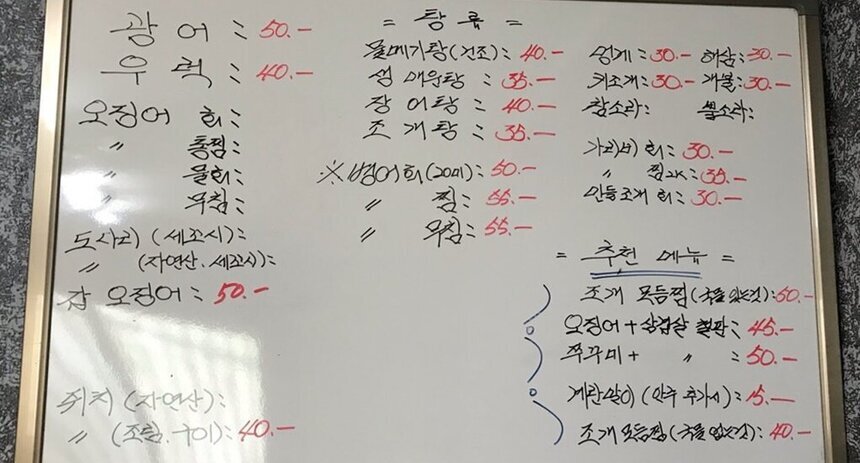 광 어 : 50.-
우 럭 : 40.-
오징어 회 :
〃 통찜 :
〃 물회 :
〃 무침 :
도다리 (세꼬시) :
〃 (자연산. 세꼬시) :
갑 오징어 : 50.-
쥐치 (자연산) :
〃 (조림. 구이) : 40.-
= 탕 류 =
물메기탕 (건조) : 40.-
섬 매운탕 : 35.-
장 어탕 : 40.-
조 개탕 : 35.-
※ 병어회 (20미) : 50.-
〃 찜 : 55.-
〃 무침 : 55.-
멍게 : 30.- 해삼 : 30.-
키조개 : 30.- 개불 : 30.-
참소라 : 뿔소라 :
가리비 회 : 30.-
〃 찜 2K : 35.-
민들조개 회 : 30.-
= 추천 메뉴 =
조개 모듬찜 (국물 있는것) : 50.-
오징어 + 삼겹살 철판 : 45.-
쭈꾸미 + 〃 : 50.-
계란말이 (안주 추가시) : 15.-
조개 모듬찜 (국물 없는것) : 40.-